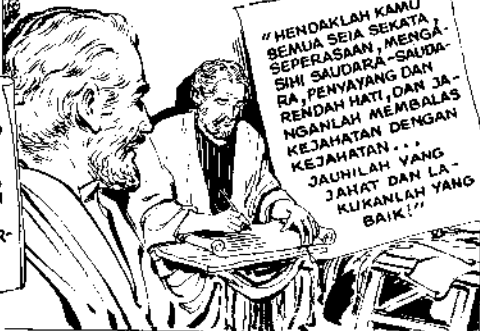 "HENDAKLAH KAMU
SEMUA SEIA SEKATA,
SEPERASAAN, MENGA-
SIHI SAUDARA-SAUDA-
RA, PENYAYANG DAN
RENDAH HATI, DAN JA-
NGANLAH MEMBALAS
KEJAHATAN DENGAN
KEJAHATAN...
JAUHILAH YANG
JAHAT DAN LA-
KUKANLAH YANG
BAIK!"